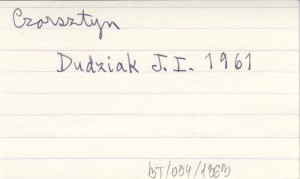 Czorsztyn
Dudziak J. I. 1961
BT/004/1363